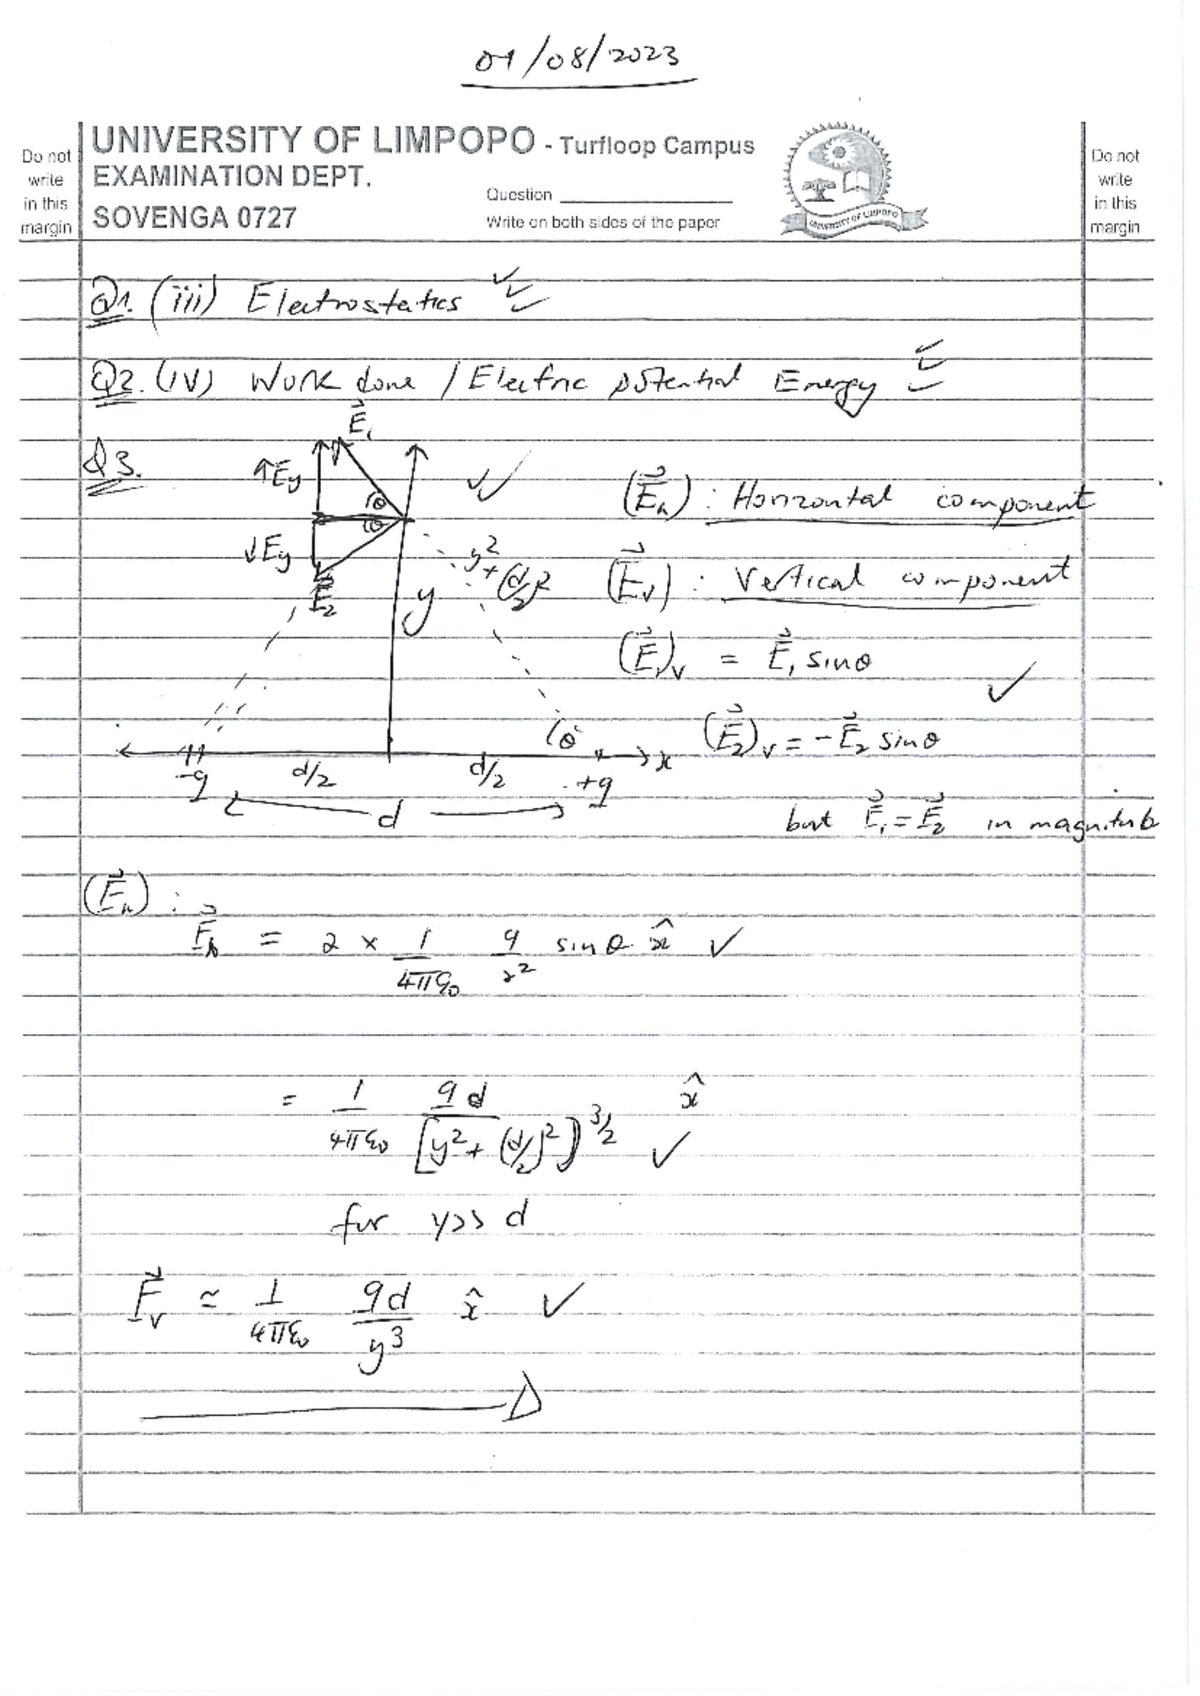 01/08/2023
Do not
write
in this
margin
UNIVERSITY OF LIMPOPO - Turfloop Campus
EXAMINATION DEPT.
SOVENGA 0727
Question
Write on both sides of the paper
UNIVERSITY OF LIMPOPO
Do not
write
in this
margin
Q1. (iii) Electrostatics ✓✓
Q2. (iv) Work done / Electric potential Energy
Q3.
E⃗₁
↑Ey
θ
θ
↓Ey
E⃗₂
y
y² + (d/2)²
θ
x
-q
d/2
d/2
+q
d
(E⃗h) : Horizontal component
(E⃗v) : Vertical component
(E⃗₁)v = E⃗₁ sinθ ✓
(E⃗₂)v = -E⃗₂ sinθ
but E⃗₁ = E⃗₂ in magnitude
(E⃗h) :
E⃗h = 2 × 1/4πε₀ q/r² sinθ x̂ ✓
= 1/4πε₀ qd/[y² + (d/2)²]^3/2 x̂ ✓
for y>> d
E⃗v ≃ 1/4πε₀ qd/y³ x̂ ✓